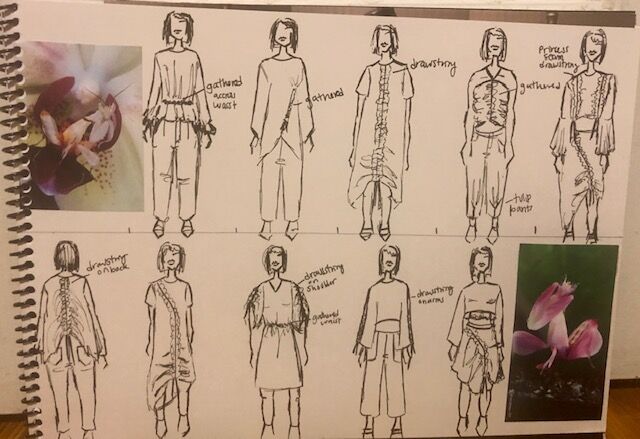 gathered
across
waist
gathered
drawstring
gathered
tulip
pants
Princess
seam
drawstring
drawstring
on back
drawstring
on
shoulder
gathered
waist
drawstring
on arms